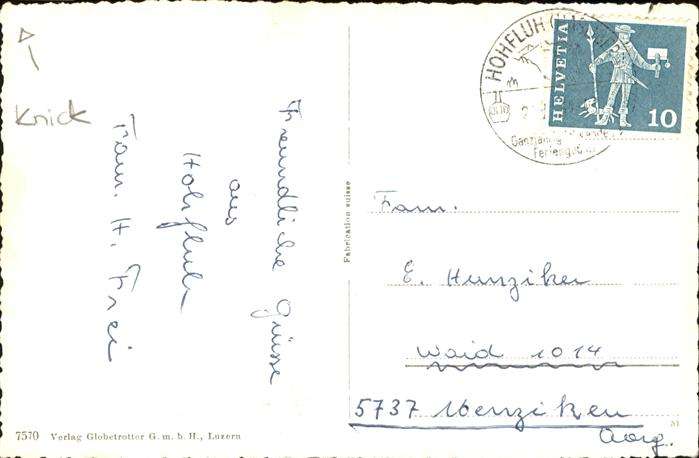 Knick
Freundliche Grüsse
aus
Hohfluh
Fam. H. Frei
7570 Verlag Globetrotter G. m. b. H., Luzern
Fabrication suisse
HOHFLUH
Ganzjährig
HELVETIA
10
Fam.
E. Hunziker
Waid 1014
5737 Menziken
Aarg.